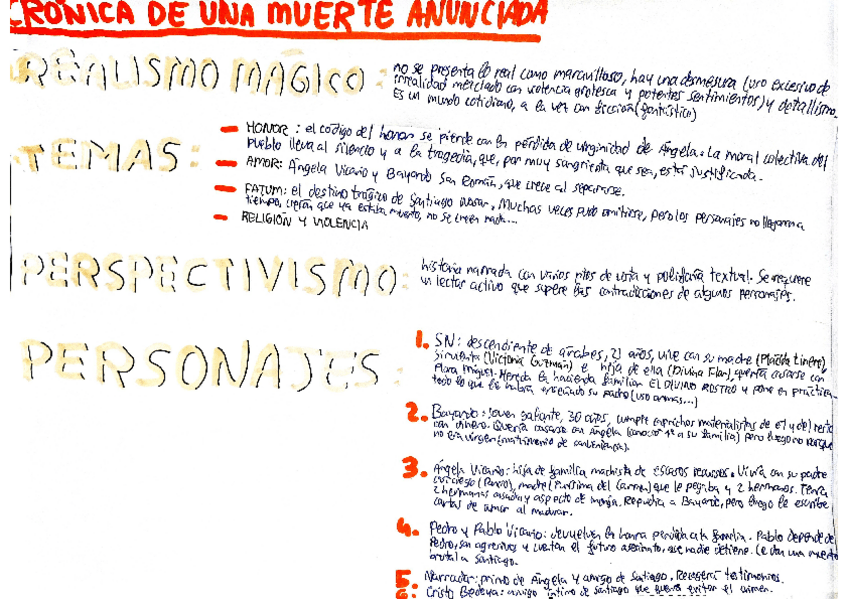 CRÓNICA DE UNA MUERTE ANUNCIADA
REALISMO MÁGICO: no se presenta lo real como maravilloso, hay una desmesura (uso excesivo de
irrealidad mezclado con violencia grotesca y potentes sentimientos) y detallismo.
Es un mundo cotidiano, a la vez con ficción (fantástica)
TEMAS:
- HONOR: el código del honor se pierde con la pérdida de virginidad de Ángela. La moral colectiva del
pueblo lleva al silencio y a la tragedia, que, por muy sangrienta que sea, está justificada.
- AMOR: Ángela Vicario y Bayardo San Román, que crece al separarse.
- FATUM: el destino trágico de Santiago Nasar. Muchas veces pudo omitirse, pero los personajes no llegaron a
tiempo, creían que ya estaba muerto, no se creen nada...
- RELIGIÓN Y VIOLENCIA
PERSPECTIVISMO: historia narrada con varios ptos de vista y polifonía textual. Se requiere
un lector activo que supere las contradicciones de algunos personajes.
PERSONAJES:
1. SN: descendiente de árabes, 21 años, vive con su madre (Plácida Linero),
sirvienta (Victoria Guzmán) e hija de ella (Divina Flor), quería casarse con
Flora Miguel. Hereda la hacienda familiar EL DIVINO ROSTRO y pone en práctica
todo lo que le había enseñado su padre (uso armas...)
2. Bayardo: joven galante, 30 años, cumple caprichos materialistas de él y del resto
con dinero. Quería casarse con Ángela (conoció a su familia) pero luego no porque
no era virgen (matrimonio de conveniencia).
3. Ángela Vicario: hija de familia machista de escasos recursos. Vivía con su padre
ciego (Poncio), madre (Purísima del Carmen) que le pegaba y 2 hermanos. Tenía
2 hermanas casadas y aspecto de monja. Repudia a Bayardo, pero luego le escribe
cartas de amor al madurar.
4. Pedro y Pablo Vicario: devuelven la honra perdida a la familia. Pablo depende de
Pedro, son agresivos y cuentan el futuro asesinato, que nadie detiene. Le dan una muerte
brutal a Santiago.
5. Narrador: primo de Ángela y amigo de Santiago. Recogerá testimonios.
6. Cristo Bedoya: amigo íntimo de Santiago que quería evitar el crimen.